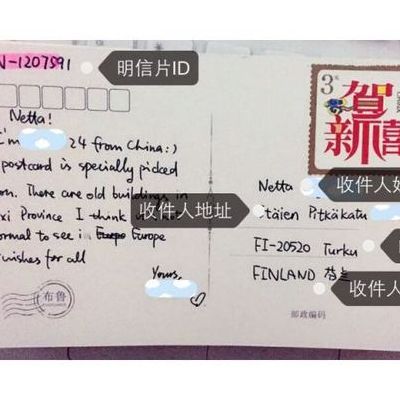 N-1207591
明信片ID
Netta!
I'm 24 from China:)
postcard is specially picked
on. There are old buildings in
xi Province I think
ormal to see i Europe
wishes for all
Yours,
布鲁
3元
贺
新禧
CHINA
Netta
收件人
收件人地址
täien Pitkäkatu
FI-20520 Turku
FINLAND 芬兰
收件人
邮政编码